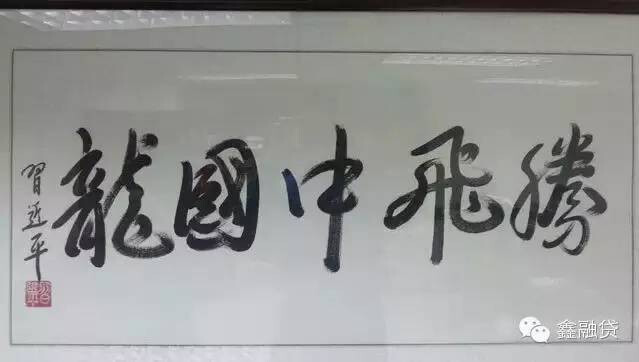 騰飛中國龍
習近平
鑫融贷